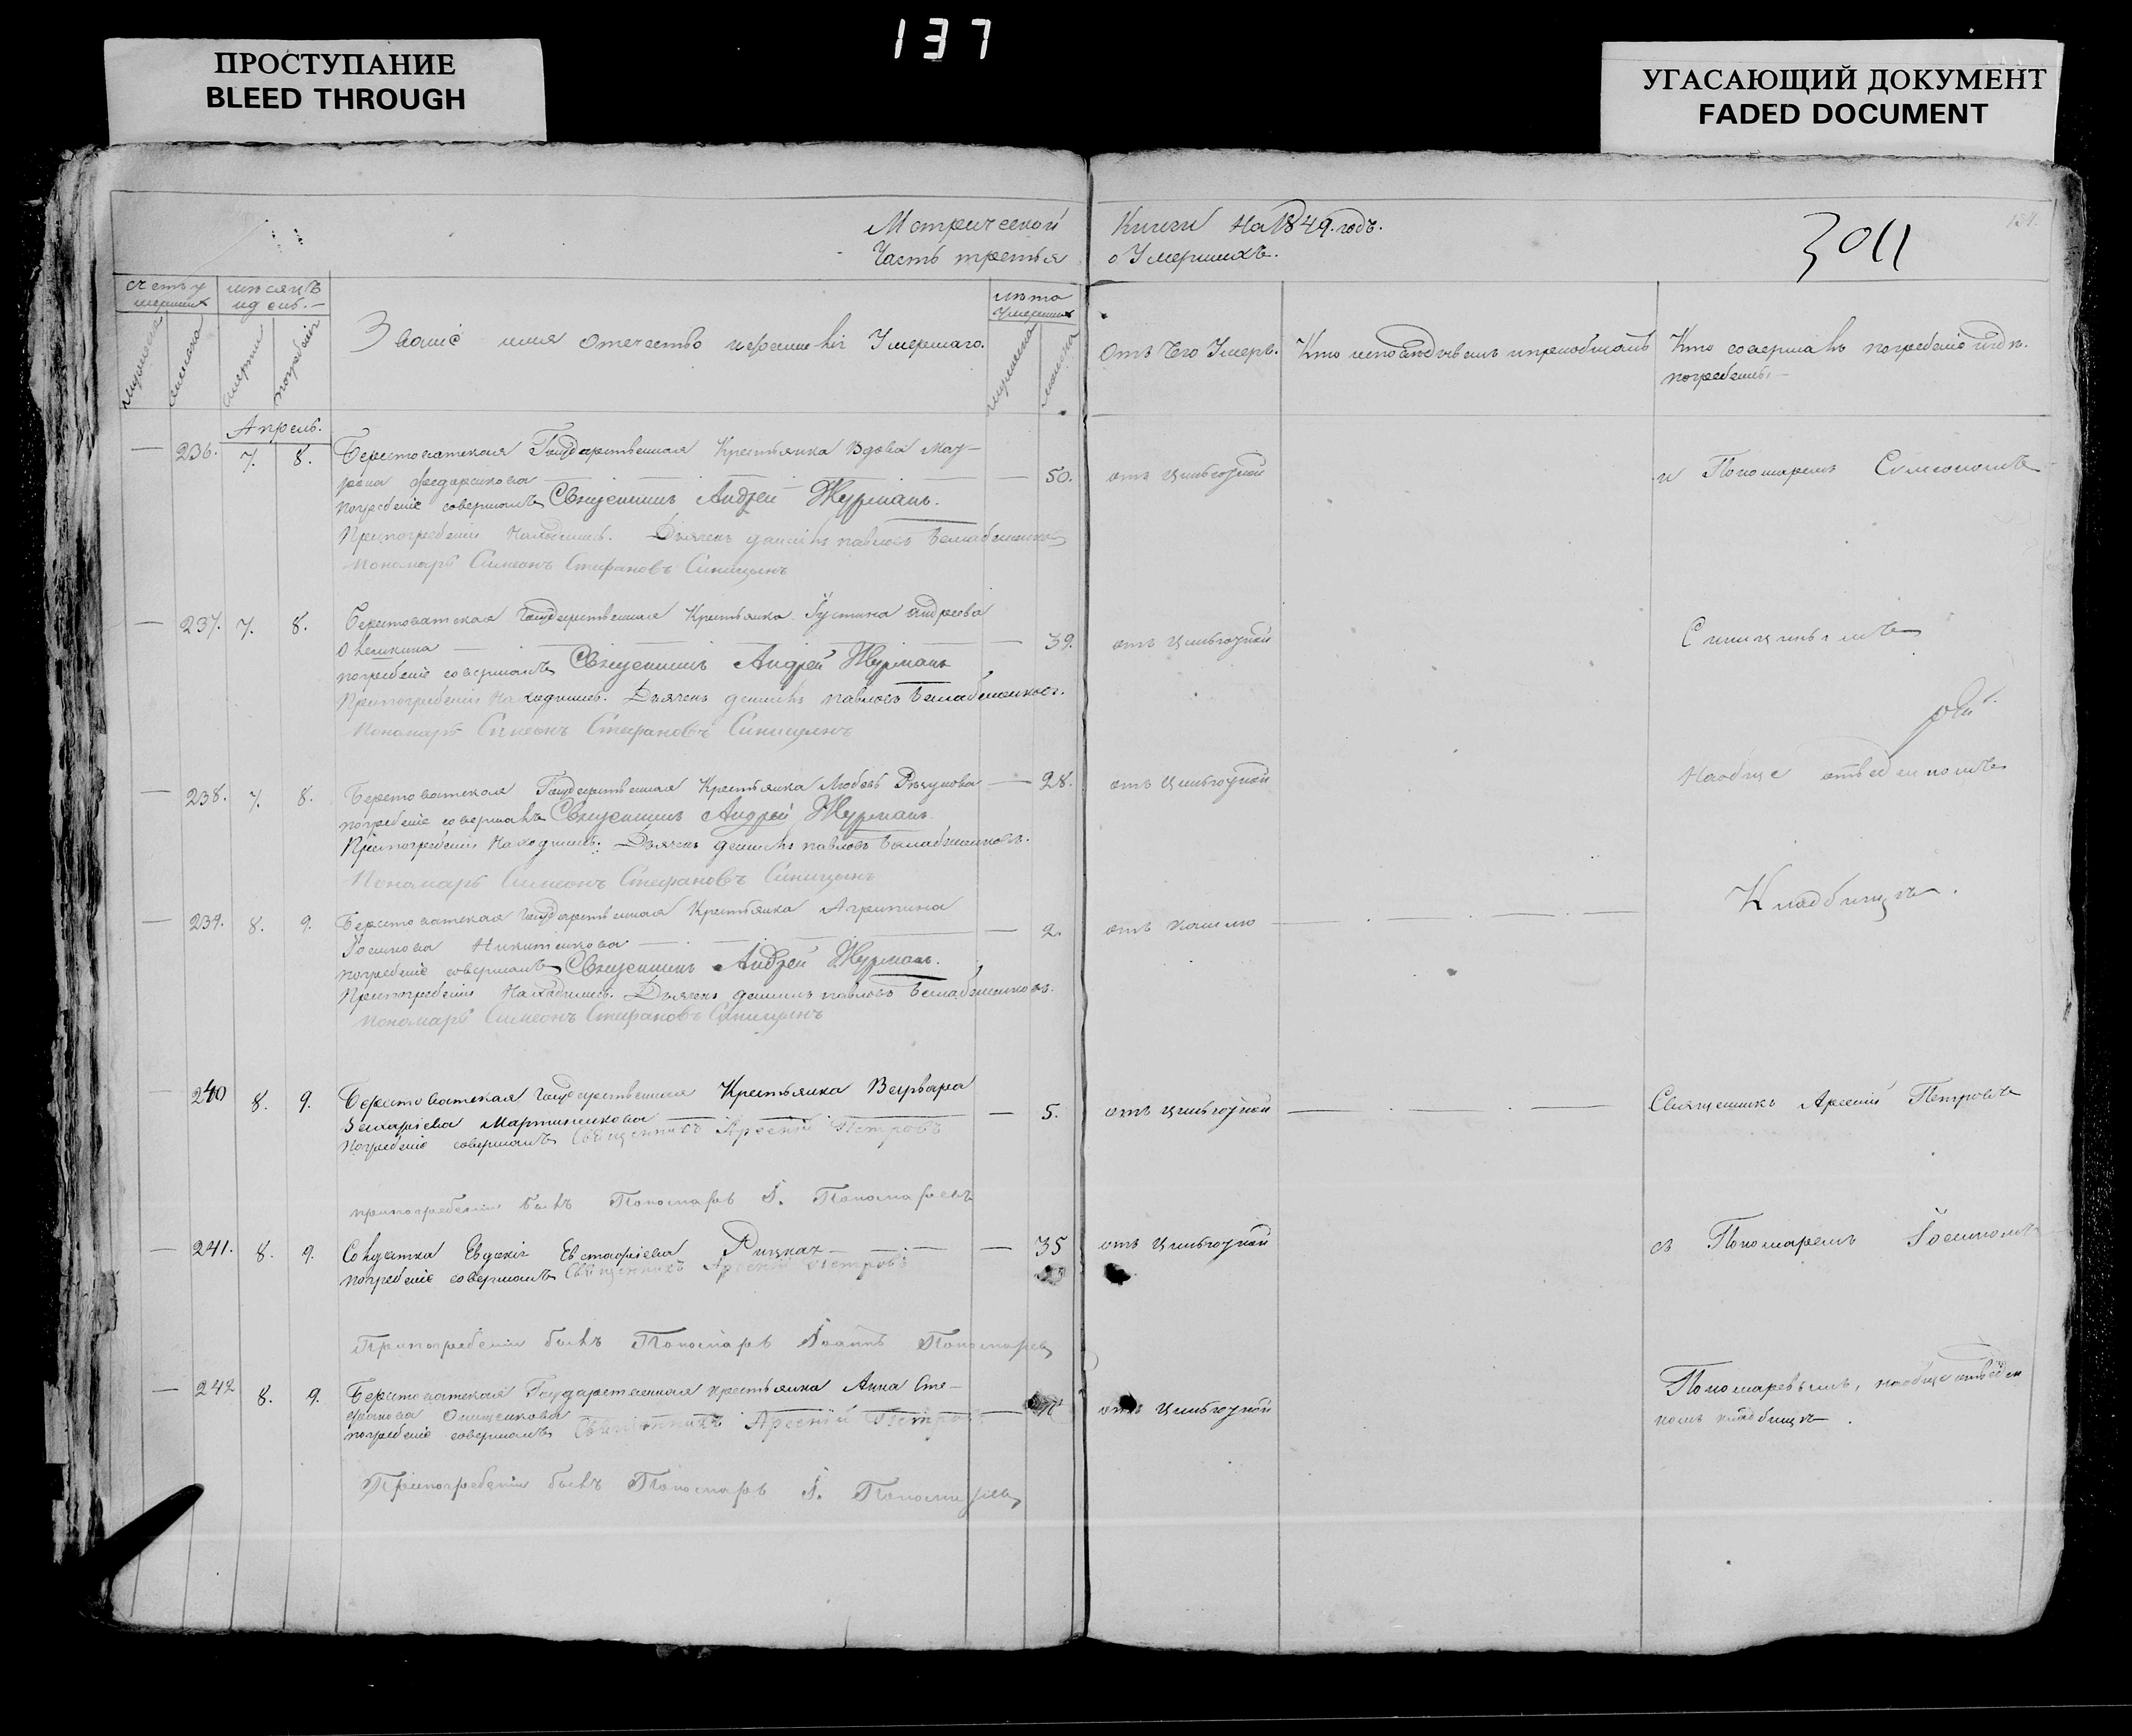 137
ПРОСТУПАНИЕ
BLEED THROUGH
УГАСАЮЩИЙ ДОКУМЕНТ
FADED DOCUMENT
Метрической Книги на 1849. годъ.
Часть третья о Умершихъ.
3011
Званіе имя отечество и фамилія Умершаго.
лѣта
Умершихъ
мѣсяцъ
смерти
погребенія
мужеска
женска
Отъ чего Умеръ.
Кто исповѣдывалъ и пріобщалъ
Кто совершалъ погребеніе и гдѣ
погребенъ.
Апрель.
— 236. 7. 8. Берестоватская Государственная Крестьянка Вдова Мав-
— 50. отъ цынготной
и Пономаремъ Симеономъ
погребеніе совершалъ Священникъ Андрей Журманъ.
При погребеніи находились. Дьячекъ павловъ
Пономарь Симеонъ Стефановъ Синицынъ
— 237. 7. 8. Берестоватская Государственная Крестьянка Іустина Андреева
— 39. отъ цынготной
Синицынымъ
погребеніе совершалъ Священникъ Андрей Журманъ
При погребеніи находились. Дьячекъ павловъ
Пономарь Симеонъ Стефановъ Синицынъ
— 238. 7. 8. Берестоватская Государственная Крестьянка Любовь
— 28. отъ цынготной
На обще отведенномъ
погребеніе совершалъ Священникъ Андрей Журманъ
При погребеніи находились. Дьячекъ павловъ
Пономарь Симеонъ Стефановъ Синицынъ
Кладбищѣ.
— 239. 8. 9. Берестоватская Государственная Крестьянка Агрипина
Никитенкова
— 2. отъ кашлю
погребеніе совершалъ Священникъ Андрей Журманъ.
При погребеніи находились. Дьячекъ павловъ
Пономарь Симеонъ Стефановъ Синицынъ
— 240 8. 9. Берестоватская Государственная Крестьянка Варвара
Захаріева Мартыненкова
— 5. отъ цынготной
Священникъ Арсеній Петровъ
Погребеніе совершалъ Священникъ Арсеній Петровъ
при погребеніи былъ Пономарь І. Пономаревъ
— 241. 8. 9. Солдатка Евдокія Евстафіева
— 35 отъ цынготной
съ Пономаремъ Іоанномъ
погребеніе совершалъ Священникъ Арсеній Петровъ
При погребеніи былъ Пономарь Іоаннъ Пономаревъ
— 242 8. 9. Берестоватская Государственная крестьянка Анна Сте-
фанова Онищенкова
отъ цынготной
Пономаревымъ, на обще отведен
номъ кладбищѣ.
погребеніе совершалъ Священникъ Арсеній Петровъ
При погребеніи былъ Пономарь І. Пономаревъ